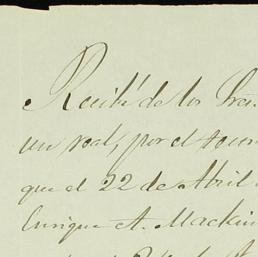 Recibí de los Sres.
un real, por el
que el 22 de Abril
Enrique A. Mackin